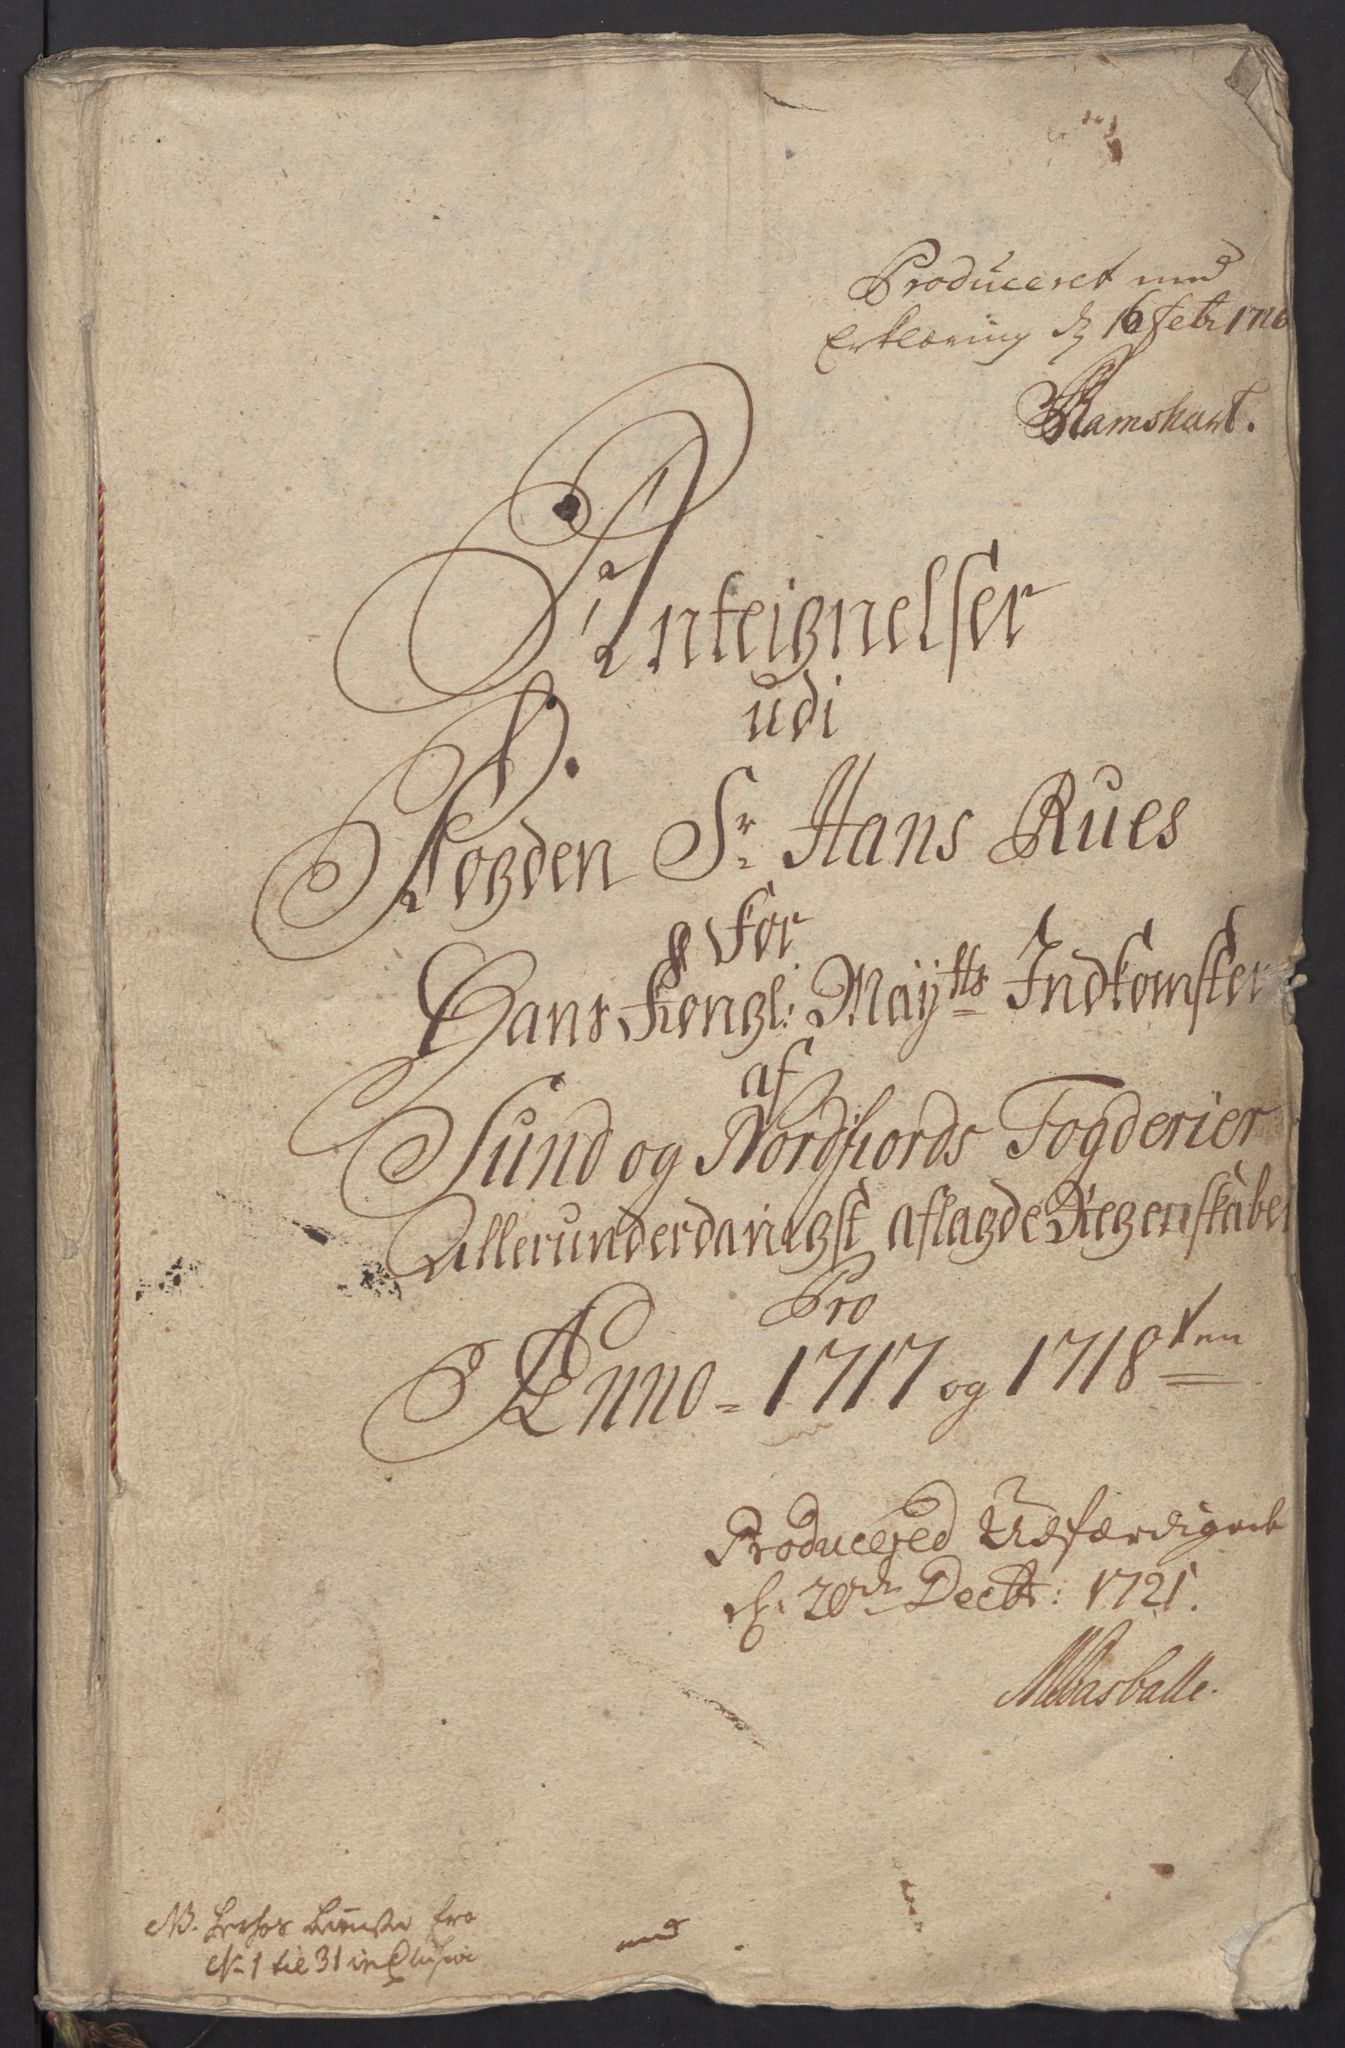 Produceret med
Erklæring d 16 febr 1720
Ramshart.
Anteignelser
udi
Fogden Sr Hans Rues
For
Hans Kongl: Mayts Indkomster
af
Sund og Nordfiords Fogderier
Allerunderdanigst aflagde Regenskaber
Pro
Anno = 1717 og 1718ten
Producered Udfærdiget
d. 20de Decbr: 1721.
NB. fra
No 1 til 31 inclusive
med